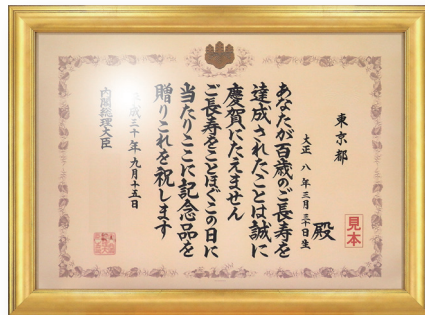 見本
東京都
大正八年三月三十日生
殿
あなたが百歳のご長寿を
達成されたことは誠に
慶賀にたえません
ご長寿をことほぐこの日に
当たりここに記念品を
贈りこれを祝します
平成三十年九月十五日
内閣総理大臣